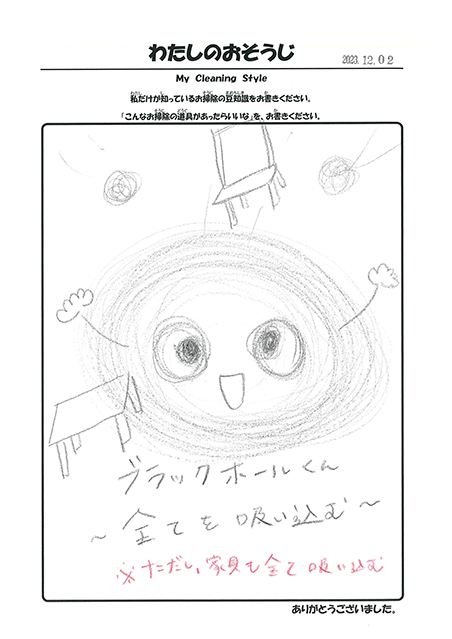 わたしのおそうじ
2023.12.02
My Cleaning Style
私だけが知っているお掃除の豆知識をお書きください。
「こんなお掃除の道具があったらいいな」を、お書きください。
ブラックホールくん
～全てを吸い込む～
※ただし、家具も全て吸い込む
ありがとうございました。